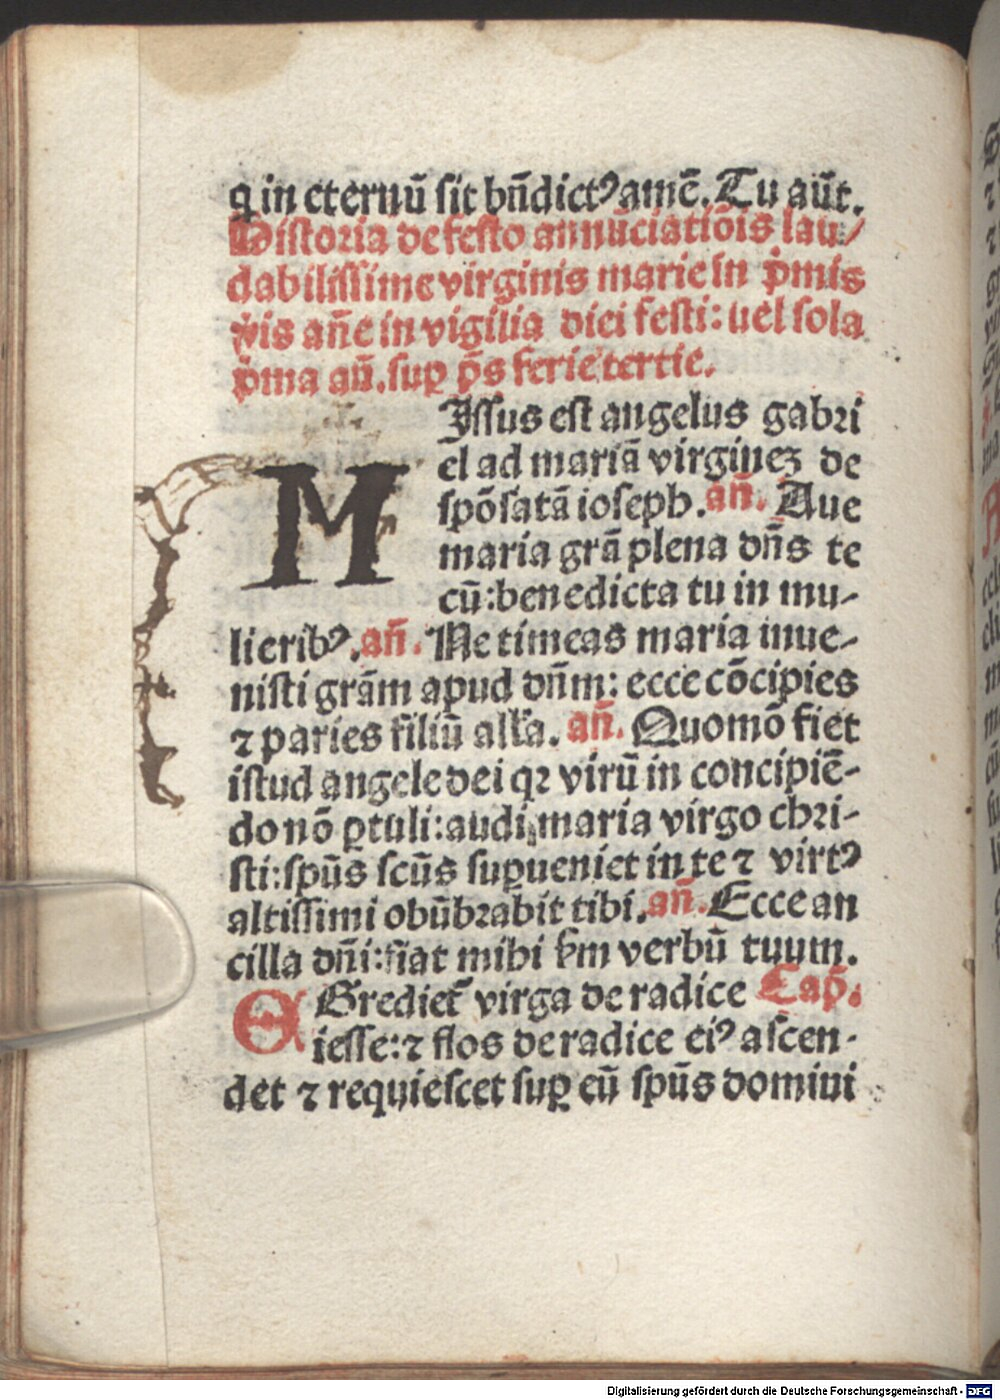 q̄ in eternū sit bn̄dictꝰ amē. Tu aūt.
Historia de festo annūciatiōis lau/
dabilissime virginis marie in pͥmis
vꝑis an̄e in vigilia diei festi: uel sola
pͥma an̄. suꝑ p̄s ferie tertie.
MIssus est angelus gabri
el ad mariā virginez de
spōsatā ioseph. an̄. Aue
maria grā plena dn̄s te
cū: benedicta tu in mu-
lieribꝰ. an̄. Ne timeas maria inue-
nisti grām apud dn̄m: ecce cōcipies
⁊ paries filiū alľa. an̄. Quomō fiet
istud angele dei qꝛ virū in concipiē-
do nō ꝑtuli: audi maria virgo chri-
sti: spūs scūs suꝑueniet in te ⁊ virtꝰ
altissimi obūbrabit tibi. an̄. Ecce an
cilla dn̄i: fiat mihi ẜm verbū tuum.
EGrediet᷑ virga de radice Cap̄.
iesse: ⁊ flos de radice eiꝰ ascen-
det ⁊ requiescet suꝑ eū spūs domini
Digitalisierung gefördert durch die Deutsche Forschungsgemeinschaft - DFG